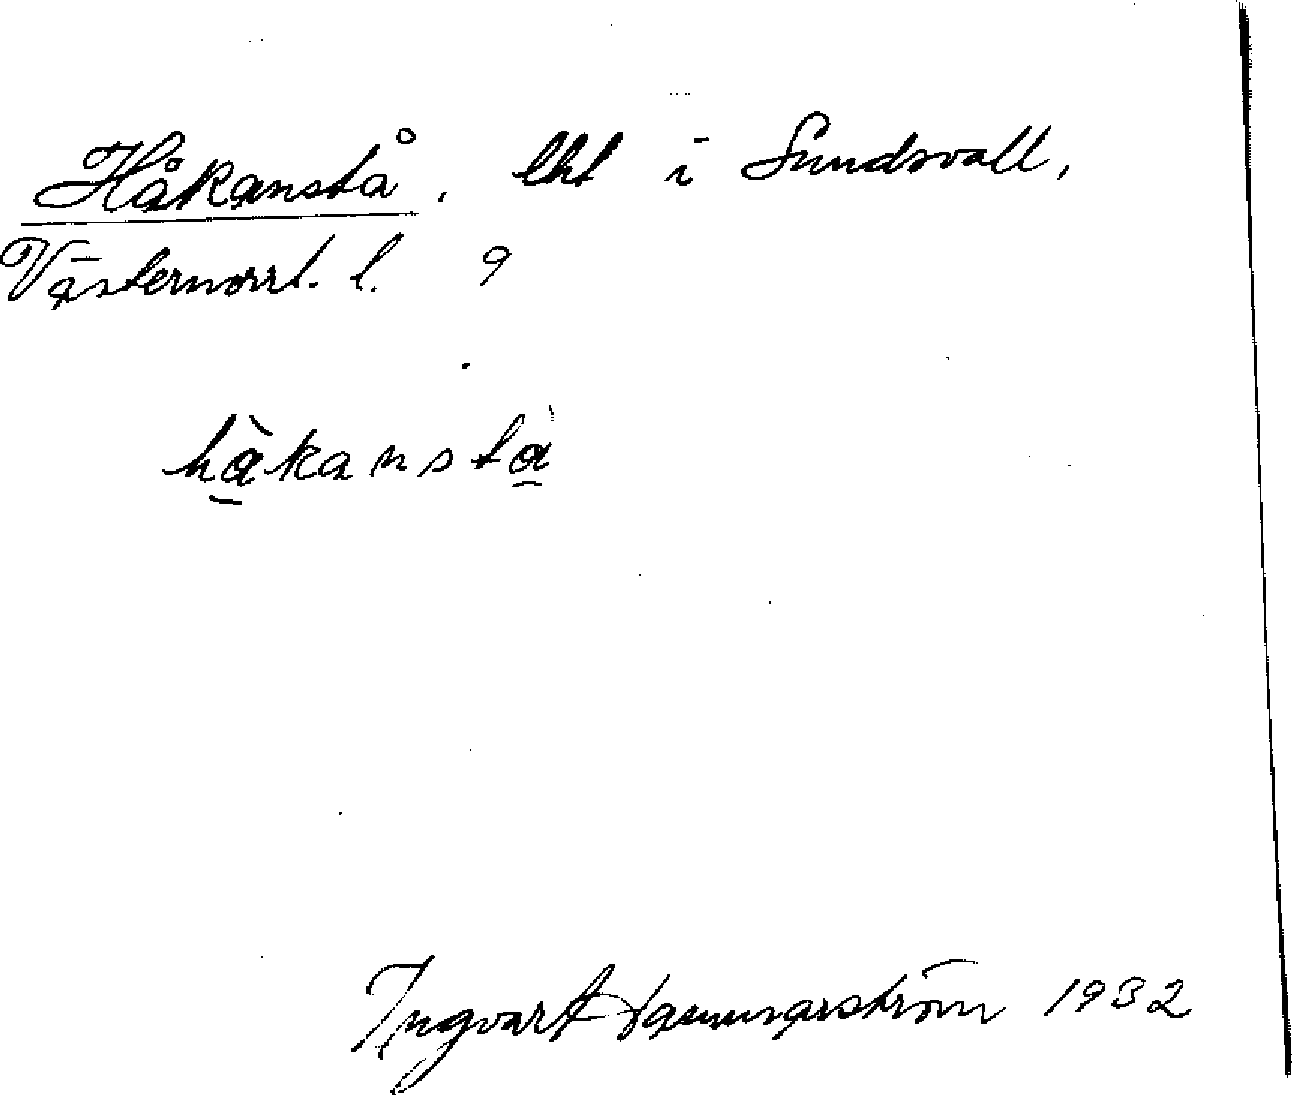 Håkanstå, lht i Sundsvall,
Västernorrl. l. 9
hàkanstà
Ingvart Hammarström 1932